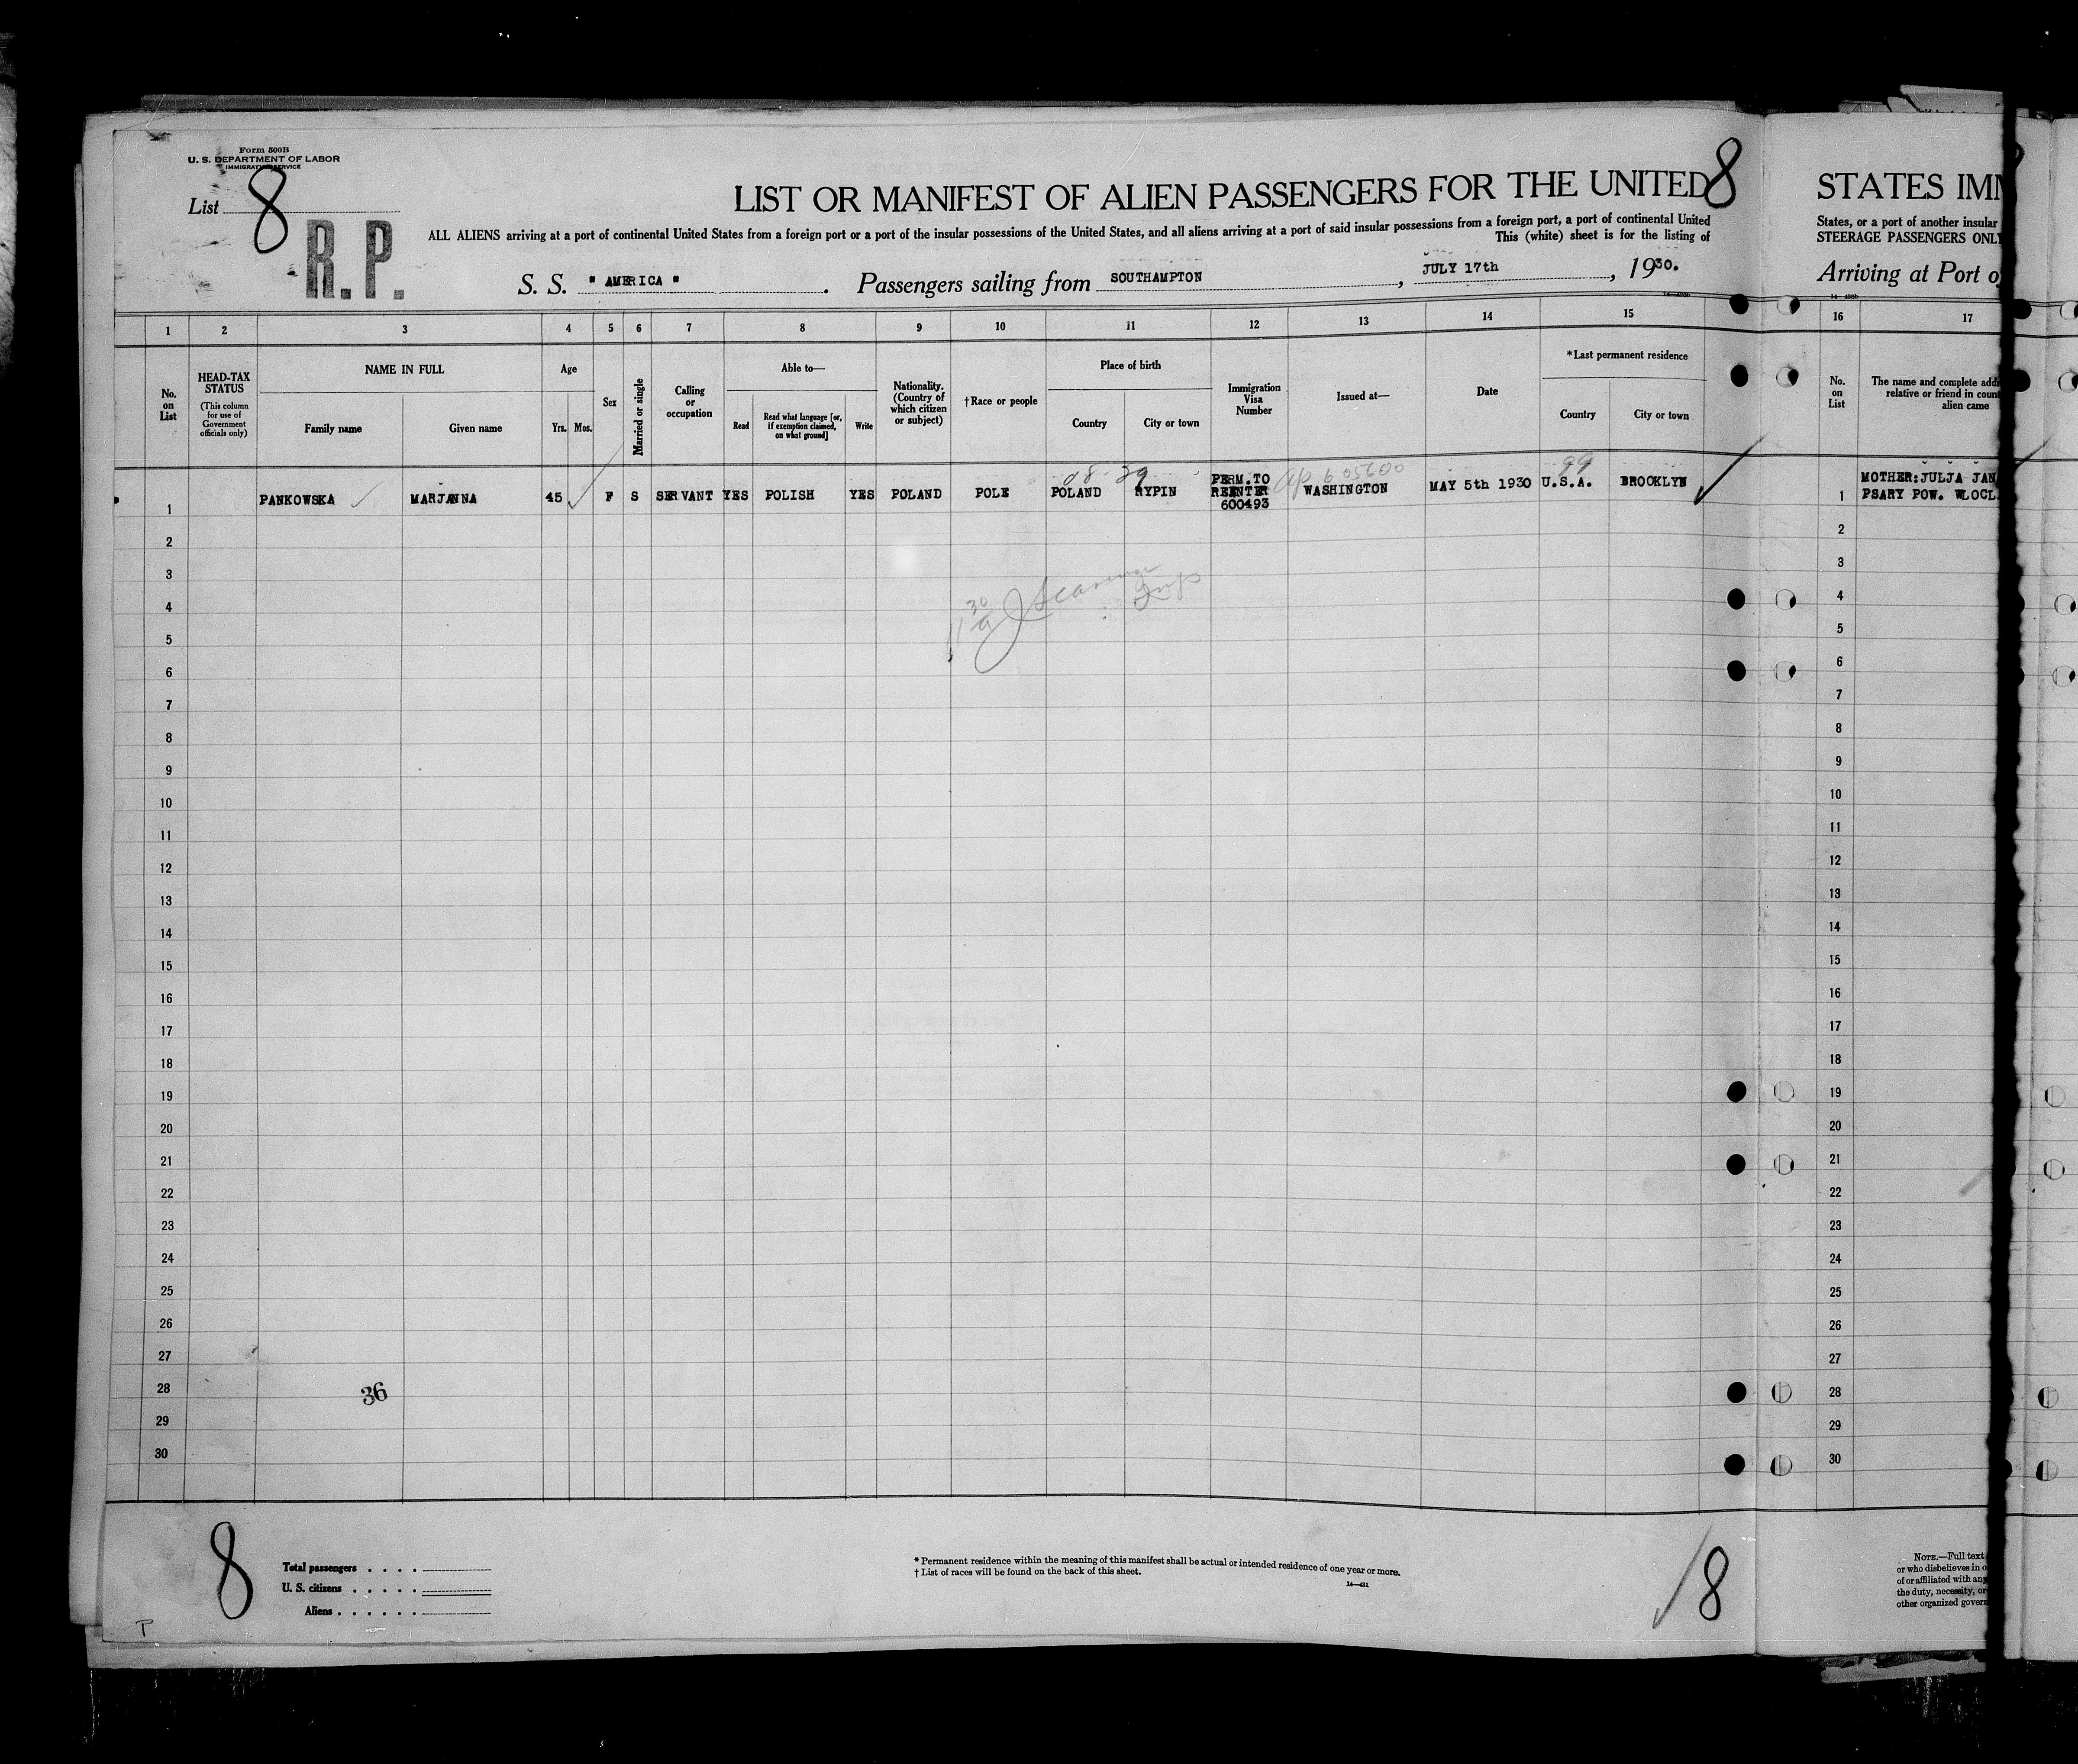 Form 500B
U. S. DEPARTMENT OF LABOR
IMMIGRATION SERVICE
List 8
R.P.
LIST OR MANIFEST OF ALIEN PASSENGERS FOR THE UNITED 8
ALL ALIENS arriving at a port of continental United States from a foreign port or a port of the insular possessions of the United States, and all aliens arriving at a port of said insular possessions from a foreign port, a port of continental United
This (white) sheet is for the listing of
S. S. " AMERICA " . Passengers sailing from SOUTHAMPTON , JULY 17th , 1930.
STATES IMM
States, or a port of another insular
STEERAGE PASSENGERS ONLY
Arriving at Port o
1 2 3 4 5 6 7 8 9 10 11 12 13 14 15 16 17
No. on List
HEAD-TAX STATUS
(This column for use of Government officials only)
NAME IN FULL
Family name
Given name
Age
Yrs. Mos.
Sex
Married or single
Calling or occupation
Able to—
Read
Read what language [or, if exemption claimed, on what ground]
Write
Nationality. (Country of which citizen or subject)
†Race or people
Place of birth
Country
City or town
Immigration Visa Number
Issued at—
Date
*Last permanent residence
Country
City or town
No. on List
The name and complete add
relative or friend in coun
alien came
08-29
ap 605600
99
1 PANKOWSKA MARJANNA 45 F S SERVANT YES POLISH YES POLAND POLE POLAND RYPIN PERM.TO REENTER 600493 WASHINGTON MAY 5th 1930 U.S.A. BROOKLYN
1 MOTHER:JULJA JAN
PSARY POW. WLOCL
2 2
3 3
4 4
5 5
6 6
7 7
8 8
9 9
10 10
11 11
12 12
13 13
14 14
15 15
16 16
17 17
18 18
19 19
20 20
21 21
22 22
23 23
24 24
25 25
26 26
27 27
28 36 28
29 29
30 30
8
Total passengers . . . .
U. S. citizens . . . . .
Aliens . . . . . .
P
* Permanent residence within the meaning of this manifest shall be actual or intended residence of one year or more.
† List of races will be found on the back of this sheet.
8
NOTE.—Full text
or who disbelieves in o
of or affiliated with any
the duty, necessity, or
other organized govern